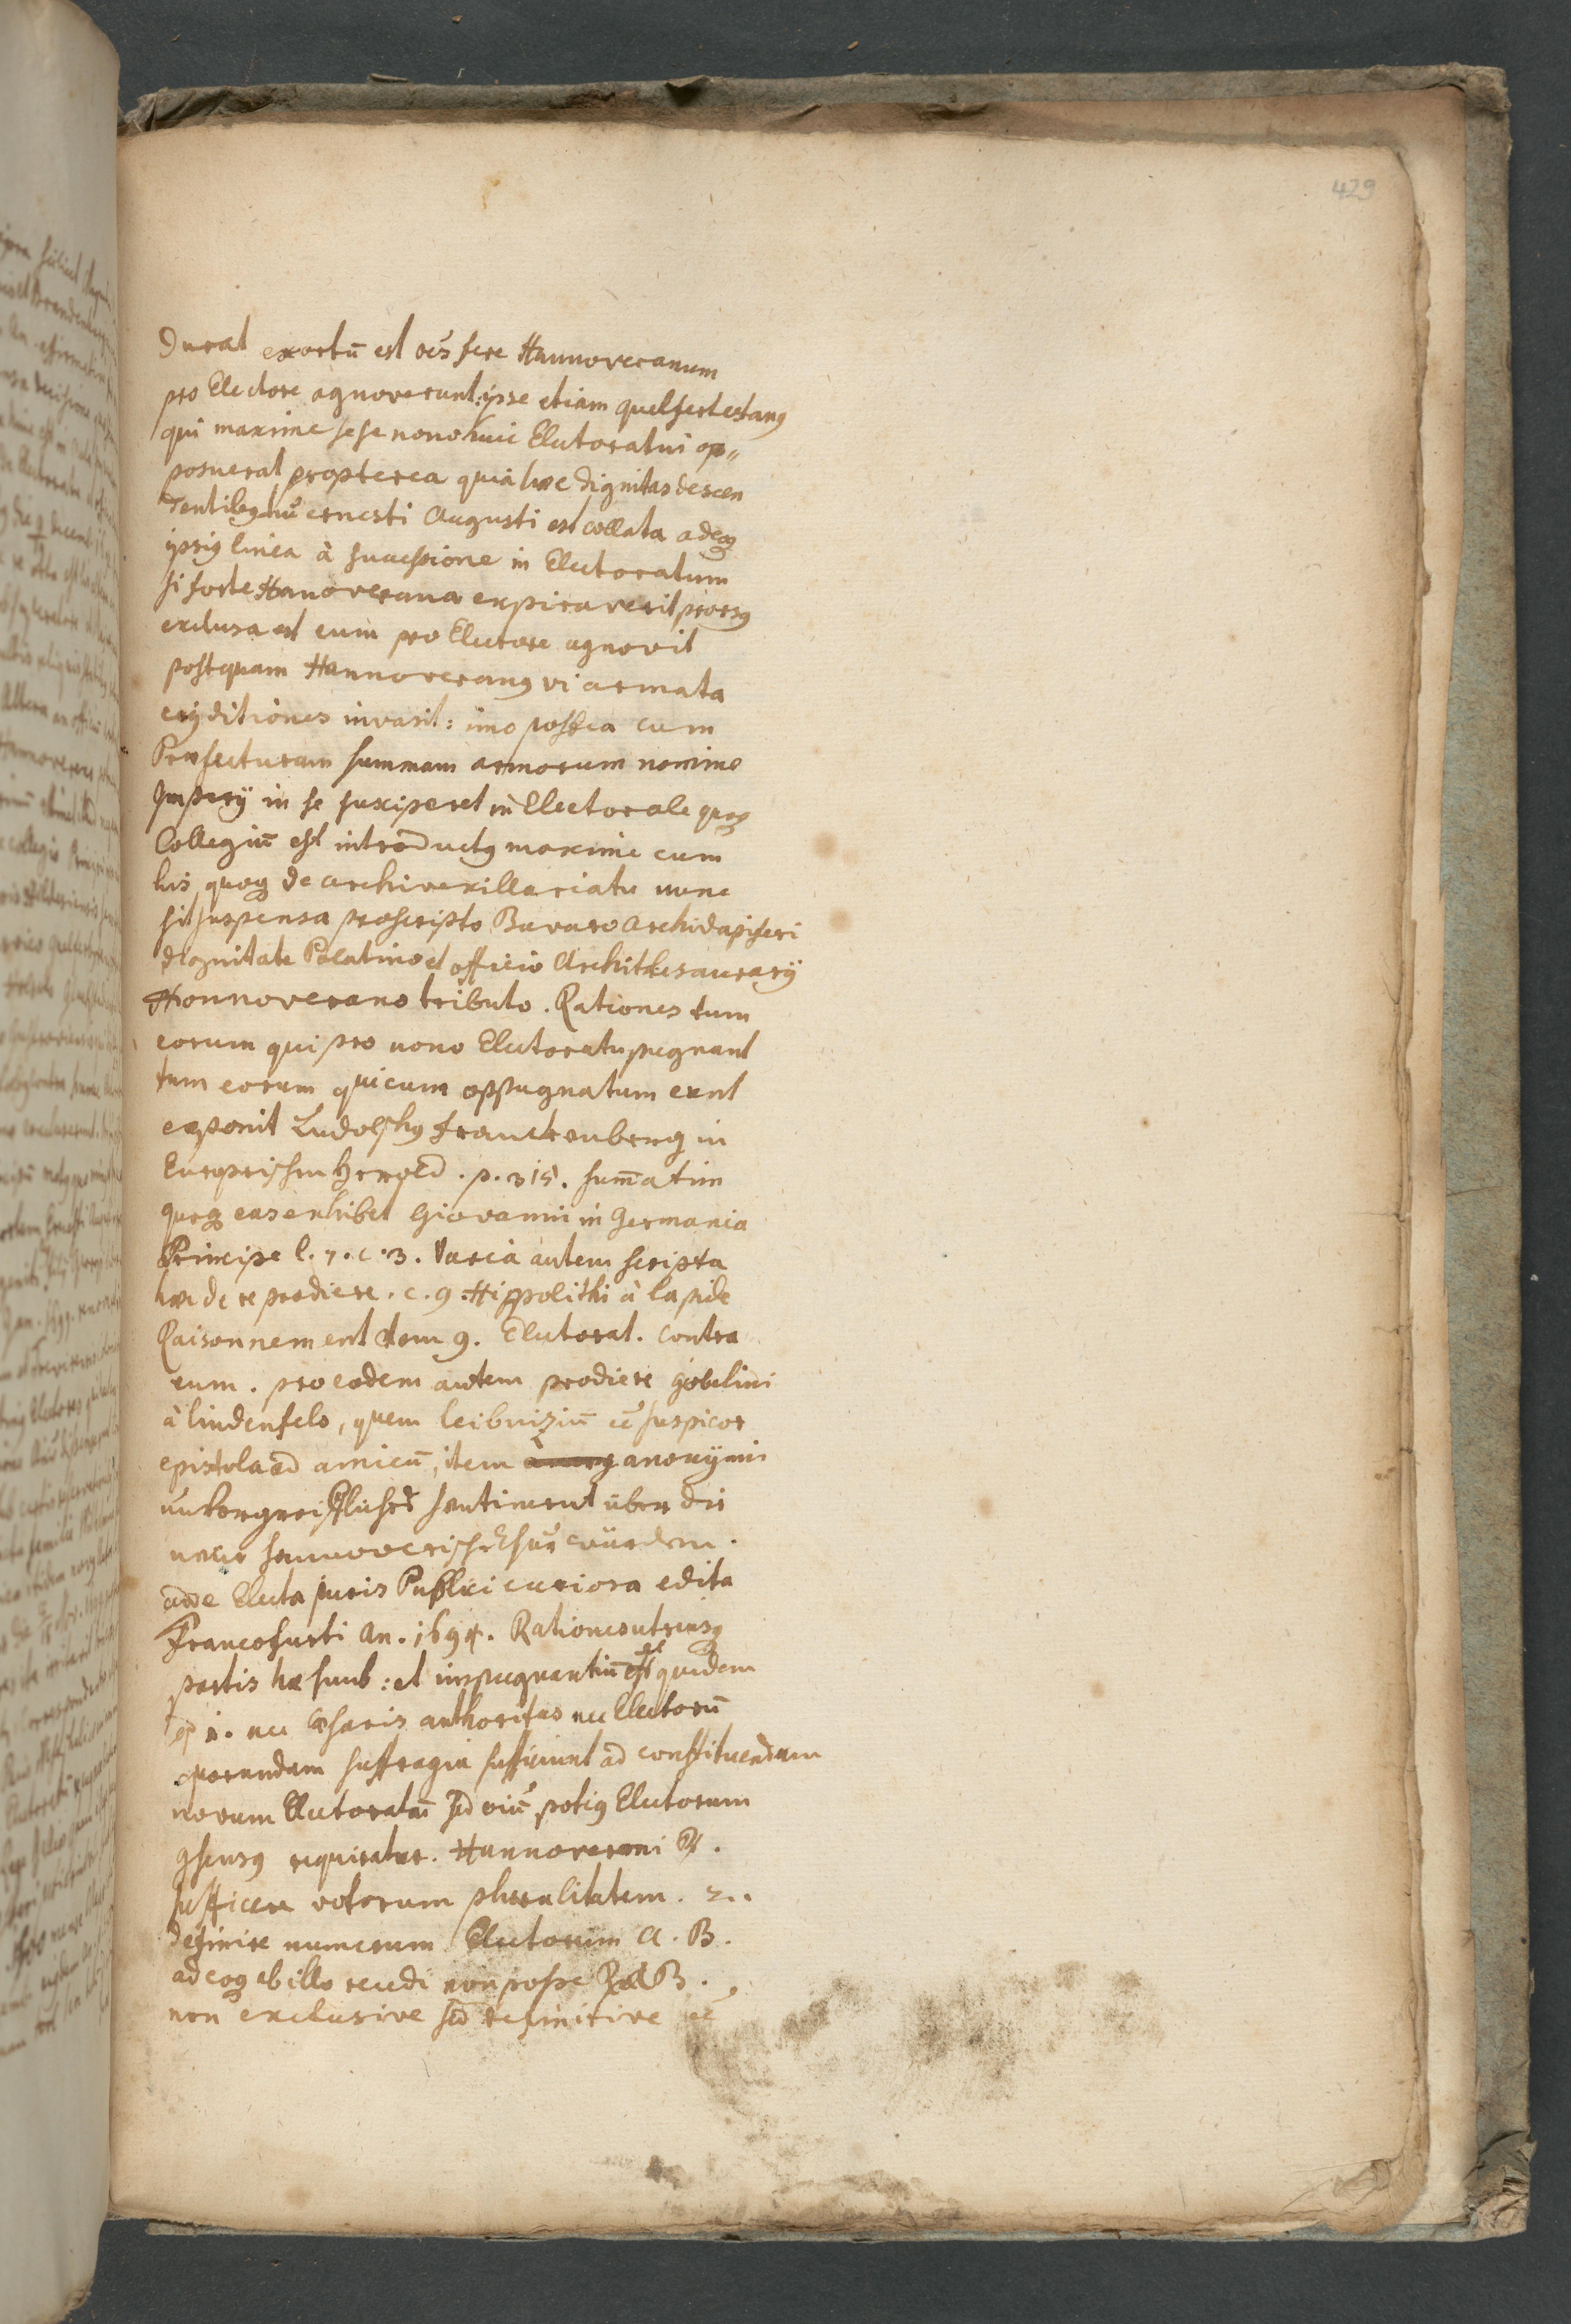 429
Durat exortū est oēs fere Hannoveranum
pro Electore agnoverunt: ipse etiam Guelferbetang
qui maxime sese nono huic Electoratui op=
posuerat propterea quia haec dignitas descen
dentibus Ernesti Augusti est collata adeoq
ipsiq linea à successione in Electoratum
si forte Hanoverana expiraverit prorsq
exclusa est eum pro Electore agnovit
postquam Hannoveranq vi armata
ditiones invasit: imo postea cum
Praefecturam summam armorum nomine
Imperij in se susciperet in Electorale quoq
Collegiū est introductq maxime cum
lis quoq de archivexillariatu nunc
sit suspensa proscripto Bavaro Archidapiferi
dignitate Palatino et officio Archithesaurarij
Hannoverano tributo. Rationes tum
eorum qui pro nono Electoratu pugnant
tum eorum qui eum oppugnatum eunt
exponit Ludolphq Franckenberg in
Europeischen Herold. p. 315. sum̄atim
quoq eas exhibet Giovanni in Germania
Principe l. 7. c. 3. Varia autem scripta
hac de re prodiere. c. g. Hippolithi à lapide
Raisonnement vom 9. Electorat. contra
eum. pro eodem autem prodiere gobelini
à lindenfels, quem leibnizium eē suspicor
epistola ad amicū, item anonymi
unvorgreiffliches sentiment über die
neue hannoverische Chur würden.
adde Electa juris Publici curiosa edita
Francofurti An. 1694. Rationes utriusq
partis hae sunt: et impugnantiū quidem
1. nec Caesaris authoritas nec Electorū
quorundam suffragia sufficiunt ad constituendum
novum Electoratū sed oiū potiq Electorum
9sensq requiratur. Hannoverani R.
sufficere votorum pluralitatem. 2.
definire numerum Electorum A. B.
adeoq ab illo recedi non posse R. A B.
non exclusive sed definitive eē